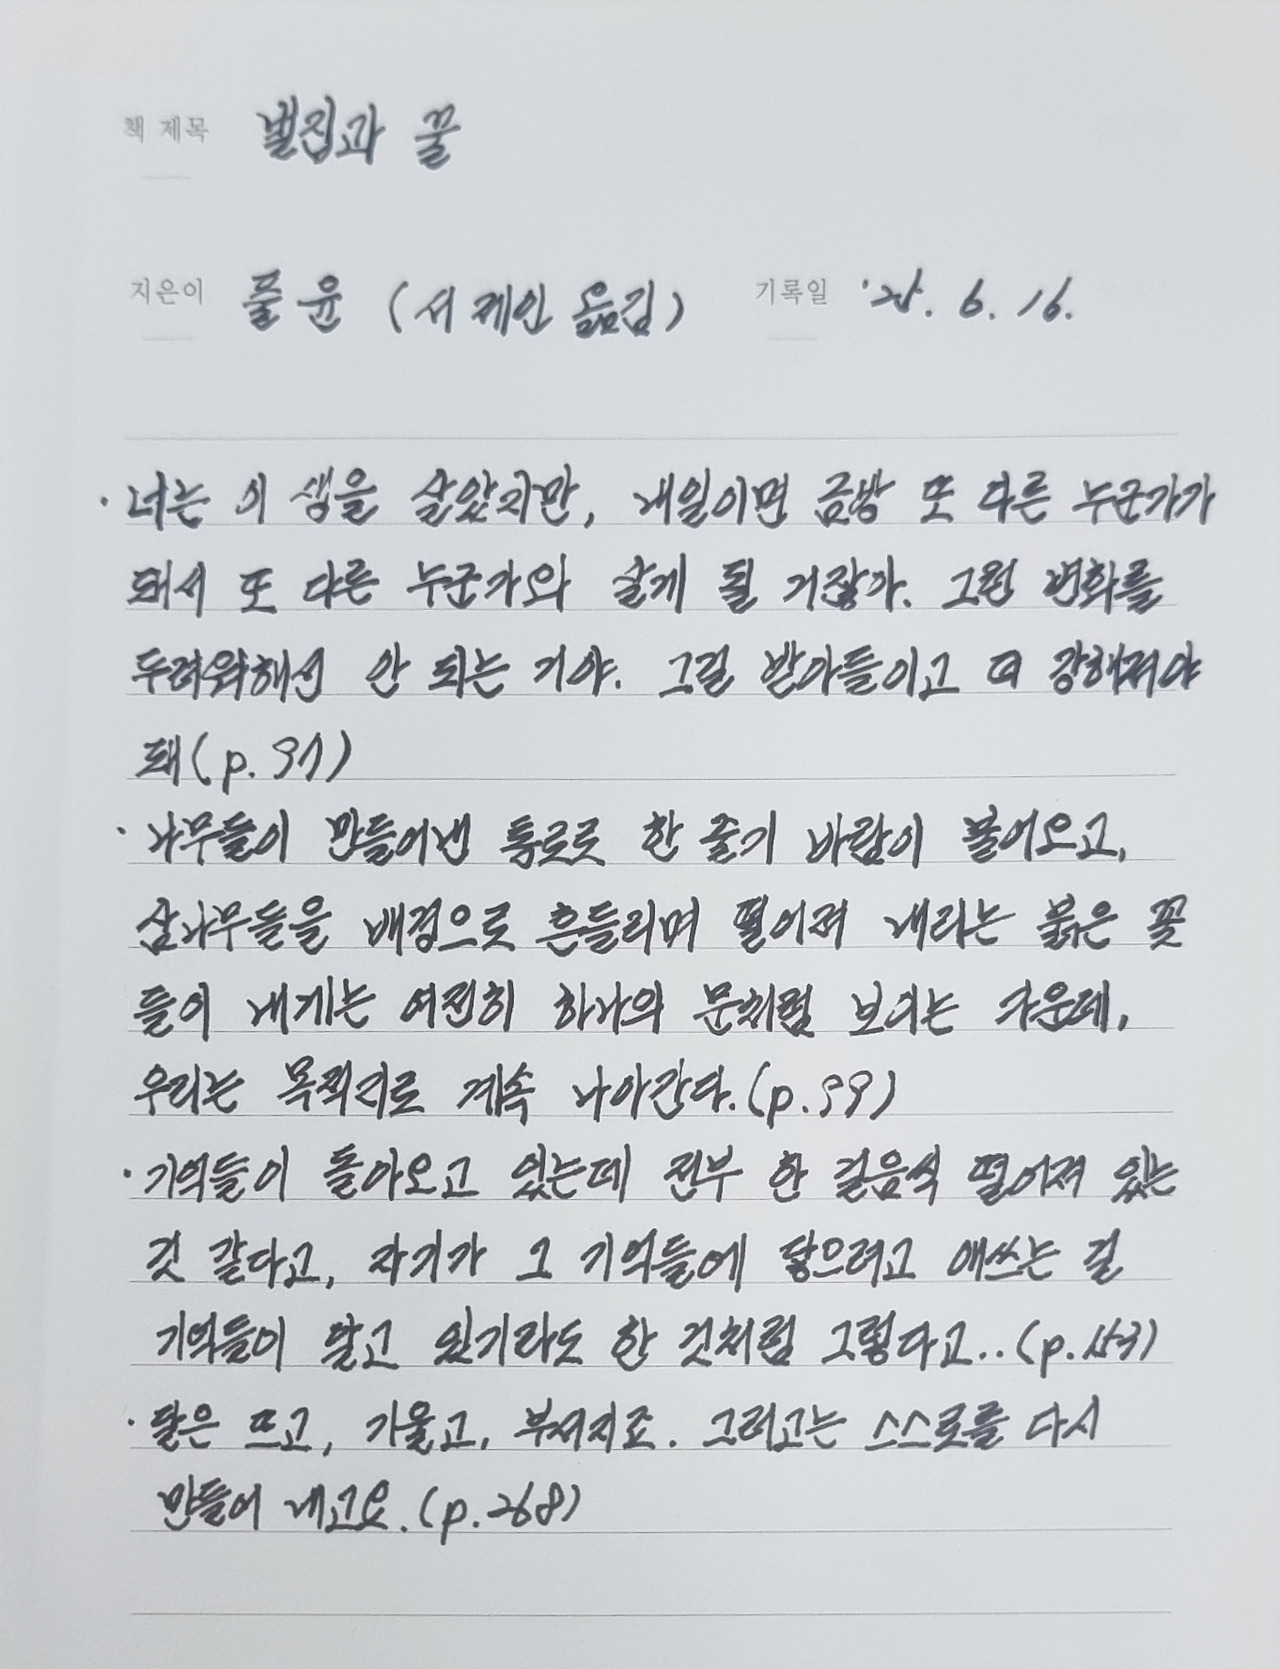 책 제목 벌집과 꿀
지은이 폴 윤 (서제인 옮김) 기록일 '25. 6. 16.
· 너는 이 생을 살았지만, 내일이면 금방 또 다른 누군가가
돼서 또 다른 누군가와 살게 될 거잖아. 그런 변화를
두려워해선 안 되는 거야. 그걸 받아들이고 더 강해져야
돼(p. 97)
· 나무들이 만들어낸 통로로 한 줄기 바람이 불어오고,
삼나무들을 배경으로 흔들리며 떨어져 내리는 붉은 꽃
들이 내게는 여전히 하나의 문처럼 보이는 가운데,
우리는 목적지로 계속 나아간다.(p.99)
· 기억들이 돌아오고 있는데 전부 한 걸음씩 떨어져 있는
것 같다고, 자기가 그 기억들에 닿으려고 애쓰는 걸
기억들이 알고 있기라도 한 것처럼 그렇다고..(p.153)
· 달은 뜨고, 기울고, 부서지죠. 그러고는 스스로를 다시
만들어 내고요.(p.268)